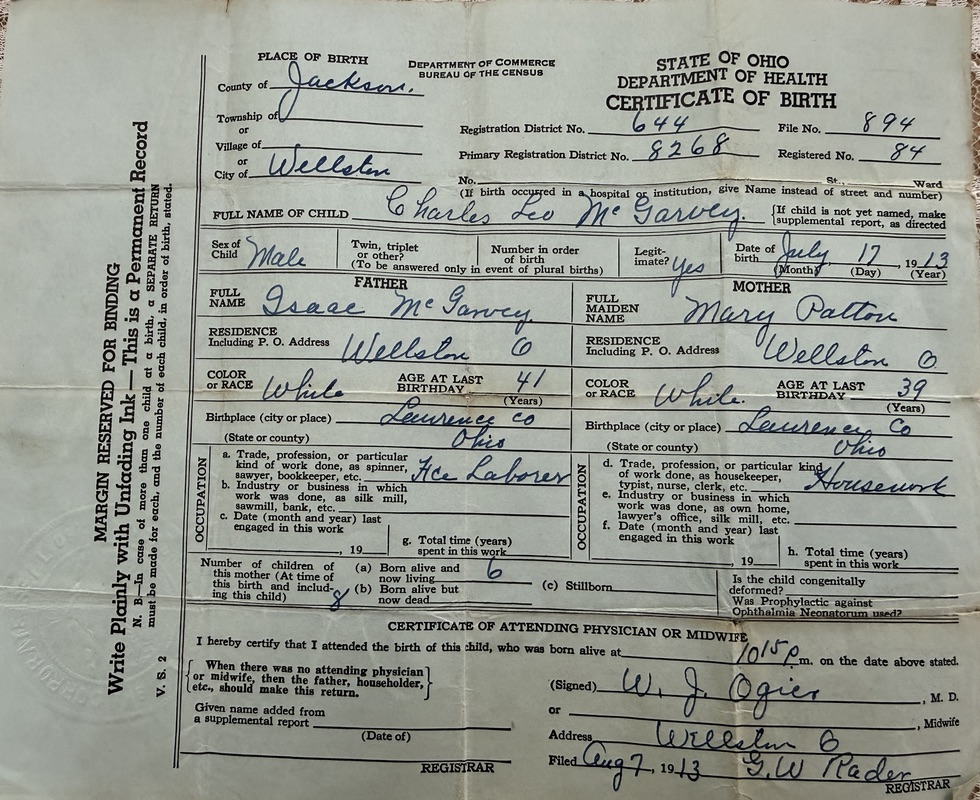 PLACE OF BIRTH
DEPARTMENT OF COMMERCE
BUREAU OF THE CENSUS
STATE OF OHIO
DEPARTMENT OF HEALTH
CERTIFICATE OF BIRTH
County of Jackson.
Township of
or
Village of
or
City of Wellston
Registration District No. 644 File No. 894
Primary Registration District No. 8268 Registered No. 84
No. St., Ward
(If birth occurred in a hospital or institution, give Name instead of street and number)
FULL NAME OF CHILD Charles Leo McGarvey. {If child is not yet named, make
supplemental report, as directed
Sex of
Child Male
Twin, triplet
or other?
Number in order
of birth
(To be answered only in event of plural births)
Legit-
imate? yes
Date of
birth July 17, 1913
(Month) (Day) (Year)
FATHER
FULL
NAME Isaac McGarvey
RESIDENCE
Including P. O. Address Wellston O
COLOR
or RACE White AGE AT LAST
BIRTHDAY 41
(Years)
Birthplace (city or place) Lawrence Co
(State or county) Ohio
OCCUPATION
a. Trade, profession, or particular
kind of work done, as spinner,
sawyer, bookkeeper, etc. Fce Laborer
b. Industry or business in which
work was done, as silk mill,
sawmill, bank, etc.
c. Date (month and year) last
engaged in this work
, 19
g. Total time (years)
spent in this work
MOTHER
FULL
MAIDEN
NAME Mary Patton
RESIDENCE
Including P. O. Address Wellston O
COLOR
or RACE White. AGE AT LAST
BIRTHDAY 39
(Years)
Birthplace (city or place) Lawrence Co
(State or county) Ohio
OCCUPATION
d. Trade, profession, or particular kind
of work done, as housekeeper,
typist, nurse, clerk, etc. Housework
e. Industry or business in which
work was done, as own home,
lawyer's office, silk mill, etc.
f. Date (month and year) last
engaged in this work
, 19
h. Total time (years)
spent in this work
Number of children of
this mother (At time of
this birth and includ-
ing this child) 8
(a) Born alive and
now living 6
(b) Born alive but
now dead
(c) Stillborn
Is the child congenitally
deformed?
Was Prophylactic against
Ophthalmia Neonatorum used?
CERTIFICATE OF ATTENDING PHYSICIAN OR MIDWIFE
I hereby certify that I attended the birth of this child, who was born alive at 10 15 P.m. on the date above stated.
{When there was no attending physician
or midwife, then the father, householder,
etc., should make this return.}
Given name added from
a supplemental report
(Date of)
REGISTRAR
(Signed) W. J. Ogier, M. D.
or , Midwife
Address Wellston O
Filed Aug 7, 1913 G.W Rader
REGISTRAR
MARGIN RESERVED FOR BINDING
Write Plainly with Unfading Ink — This is a Permanent Record
N. B—In case of more than one child at a birth, a SEPARATE RETURN
must be made for each, and the number of each child, in order of birth, stated.
V. S. 2